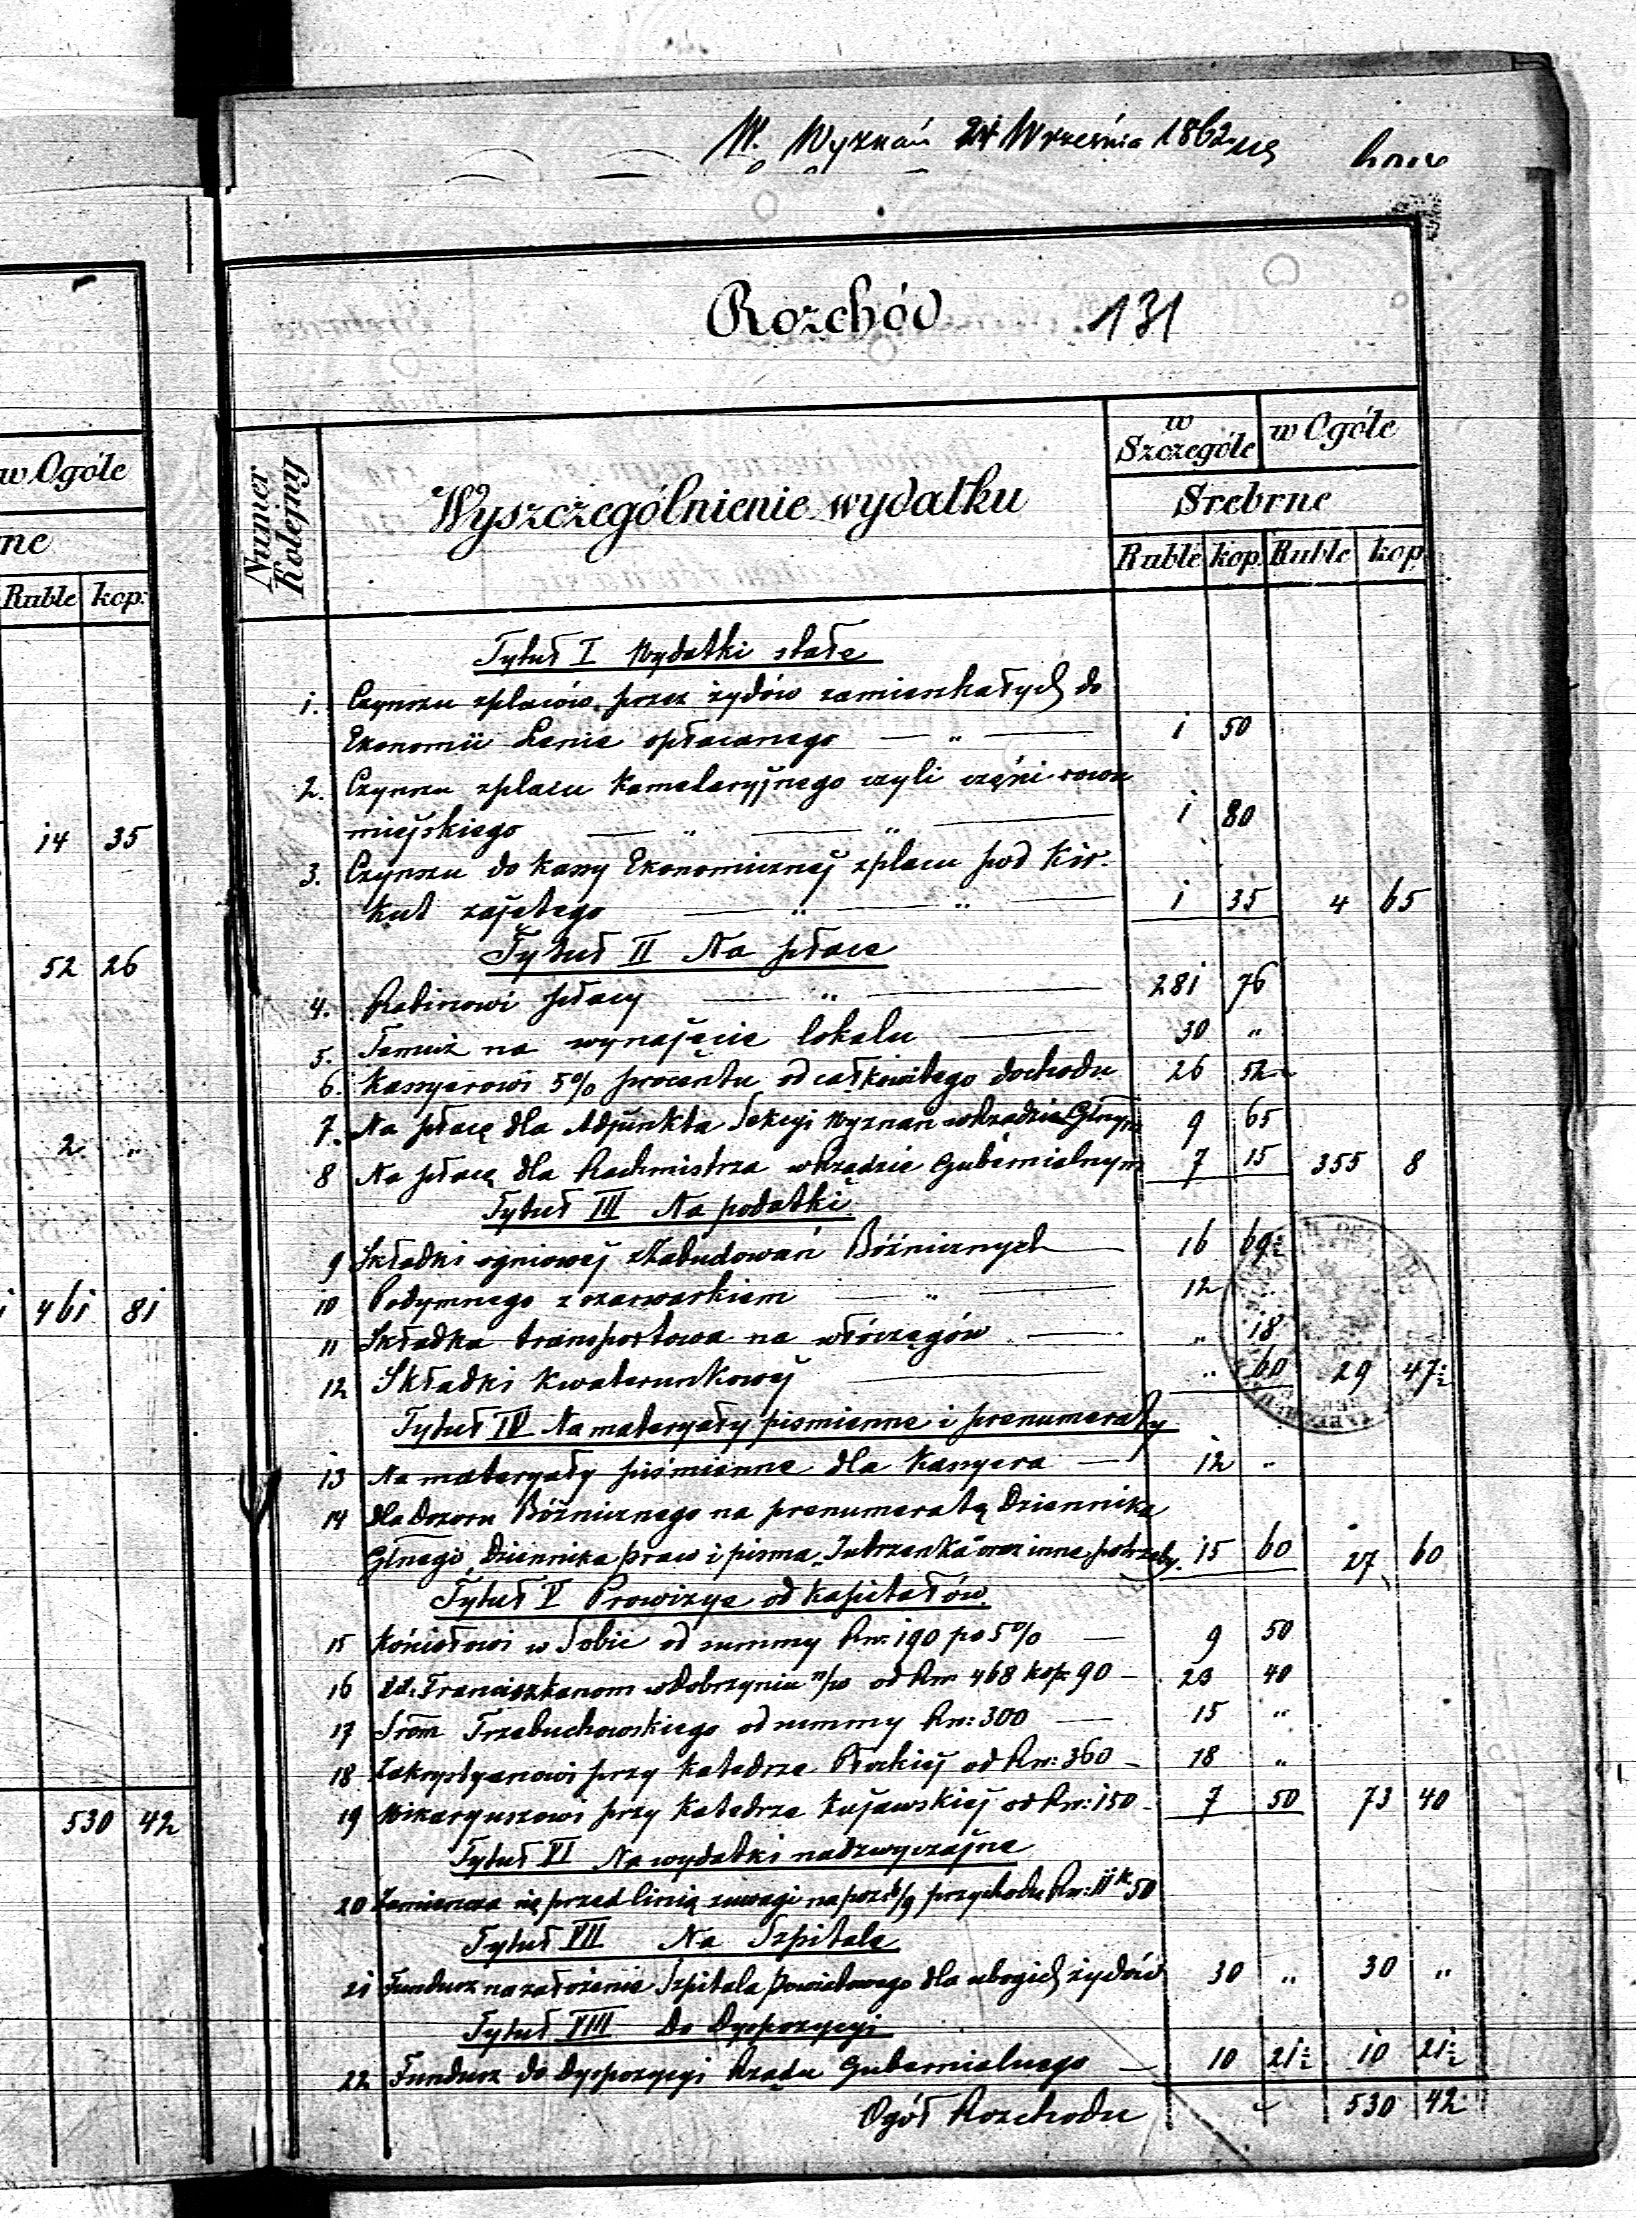 W. Wyznań 24 Września 1862
Rozchód 131
w Ogóle
ne
Ruble kop:
14 35
52 26
2 "
461 81
530 42
Numer Kolejny
Wyszczególnienie wydatku
w Szczególe
w Ogóle
Srebrne
Ruble kop. Ruble kop.
Tytuł I Wydatki stałe
1. Czynszu z placów przez żydów zamieszkałych do
Ekonomii Lenie opłacanego — " — 1 50
2. Czynszu z placu Kamelaryjnego czyli części rowu
miejskiego — " — " — 1 80
3. Czynszu do Kassy Ekonomicznej z placu pod Kir-
kut zajętego — " — " — 1 35 4 65
Tytuł II Na płace
4. Rabinowi płacy — " — 281 76
5. Temuż na wynajęcie lokalu — 30 "
6. Kassyerowi 5% procentu od całkowitego dochodu 26 52
7. Na płacę dla Adjunkta Sekcyi Wyznań w Rządzie Glnym 9 65
8 Na płacę dla Rachmistrza w Rządzie Gubernialnym 7 15 355 8
Tytuł III Na podatki
9 Składki ogniowej z Zabudowań Bóżnicznych — 16 69½
10 Podymnego z szarwarkiem — " — 12
11 Składka transportowa na włóczęgów — " 18
12 Składki Kwaterunkowej — " 60 29 47½
Tytuł IV Na materyały piśmienne i prenumeraty
13 Na materyały piśmienne dla Kassyera — 12 "
14 dla Dozoru Bóżnicznego na prenumeratę Dziennika
Glnego, Dziennika praw i pisma "Jutrzenka" oraz inne potrzeby. 15 60 27 60
Tytuł V Prowizye od Kapitałów
15 Kościołowi w Sobie od summy Rsr: 190 po 5% — 9 50
16 XX. Franciszkanom w Dobrzyniu n/w od Rsr 468 kop. 90 — 23 40
17 Srom Trzebuchowskiego od summy Rsr: 300 — 15 "
18 Zakrystyanowi przy Katedrze Płockiej od Rsr: 360 — 18 "
19 Wikaryuszowi przy Katedrze Kujawskiej od Rsr: 150 — 7 50 73 40
Tytuł VI Na wydatki nadzwyczajne
20 Zamieszcza się przed linią z uwagi na poz: 8/9 przychodu Rsr: 11 k 50
Tytuł VII Na Szpitale
21 Fundusz na założenie Szpitala Powiatowego dla ubogich żydów 30 " 30 "
Tytuł VIII Do Dyspozycyi
22 Fundusz do Dyspozycyi Rządu Gubernialnego — 10 21½ 10 21½
Ogół Rozchodu 530 42